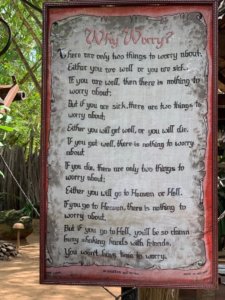 Why Worry?
There are only two things to worry about;
Either you are well or you are sick.
If you are well, then there is nothing to
worry about;
But if you are sick, there are two things to
worry about;
Either you will get well, or you will die.
If you get well, there is nothing to worry
about.
If you die, there are only two things to
worry about;
Either you will go to Heaven or Hell.
If you go to Heaven, there is nothing to
worry about.
But if you go to Hell, you'll be so damn
busy shaking hands with friends,
You won't have time to worry.